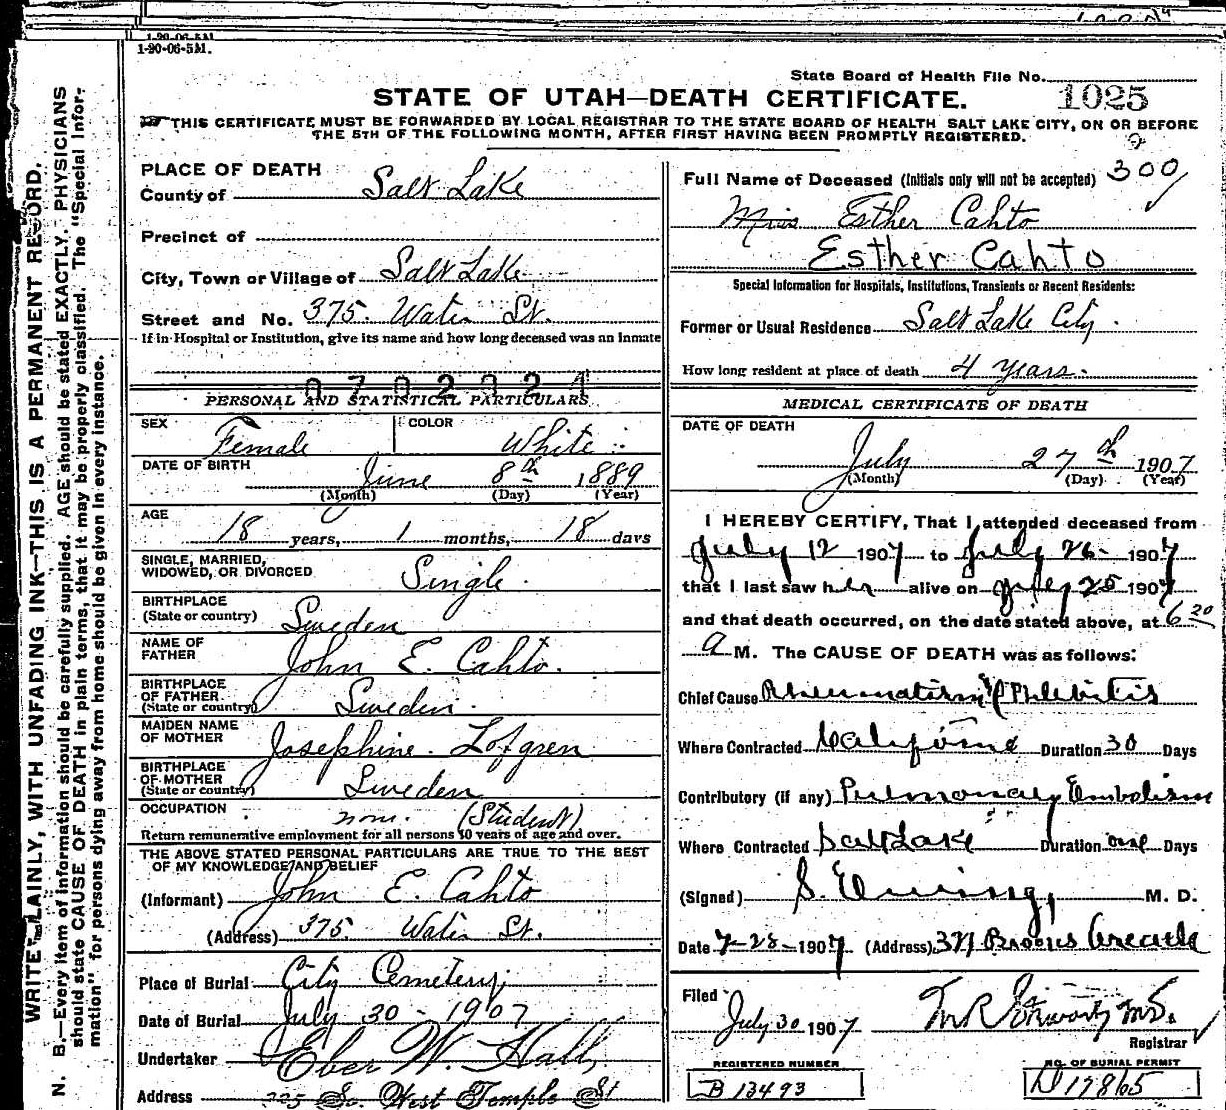 1-20-06-5M.
State Board of Health File No. 1025
STATE OF UTAH—DEATH CERTIFICATE.
THIS CERTIFICATE MUST BE FORWARDED BY LOCAL REGISTRAR TO THE STATE BOARD OF HEALTH SALT LAKE CITY, ON OR BEFORE
THE 5TH OF THE FOLLOWING MONTH, AFTER FIRST HAVING BEEN PROMPTLY REGISTERED.
WRITE PLAINLY, WITH UNFADING INK—THIS IS A PERMANENT RECORD.
N. B.—Every item of information should be carefully supplied. AGE should be stated EXACTLY. PHYSICIANS
should state CAUSE OF DEATH in plain terms, that it may be properly classified. The "Special Infor-
mation" for persons dying away from home should be given in every instance.
PLACE OF DEATH
County of Salt Lake
Precinct of
City, Town or Village of Salt Lake
Street and No. 375. Water St.
If in Hospital or Institution, give its name and how long deceased was an inmate
PERSONAL AND STATISTICAL PARTICULARS
SEX Female COLOR White
DATE OF BIRTH June 8th 1889
(Month) (Day) (Year)
AGE 18 years, 1 months, 18 days
SINGLE, MARRIED,
WIDOWED, OR DIVORCED Single.
BIRTHPLACE
(State or country) Sweden
NAME OF
FATHER John E. Cahto.
BIRTHPLACE
OF FATHER
(State or country) Sweden.
MAIDEN NAME
OF MOTHER Josephine. Lofgren
BIRTHPLACE
OF MOTHER
(State or country) Sweden
OCCUPATION non. (Student)
Return remunerative employment for all persons 10 years of age and over.
THE ABOVE STATED PERSONAL PARTICULARS ARE TRUE TO THE BEST
OF MY KNOWLEDGE AND BELIEF
(Informant) John E. Cahto
(Address) 375. Water St.
Place of Burial City Cemetery
Date of Burial July 30 - 1907
Undertaker Eber W. Hall
Address 225 So. West Temple St
Full Name of Deceased (Initials only will not be accepted) 300
Miss Esther Cahto
Esther Cahto
Special Information for Hospitals, Institutions, Transients or Recent Residents:
Former or Usual Residence Salt Lake City.
How long resident at place of death 4 years.
MEDICAL CERTIFICATE OF DEATH
DATE OF DEATH
July 27th 1907
(Month) (Day) (Year)
I HEREBY CERTIFY, That I attended deceased from
July 12 1907 to July 26 1907
that I last saw her alive on July 25 1907
and that death occurred, on the date stated above, at 6 20
A M. The CAUSE OF DEATH was as follows:
Chief Cause Rheumatism & Phlebitis
Where Contracted California Duration 30 Days
Contributory (if any) Pulmonary Embolism
Where Contracted Salt Lake Duration one Days
(Signed) S. Ewing, M. D.
Date 7-28-1907. (Address) 321 Brooks Arcade
Filed July 30 1907
Registrar
REGISTERED NUMBER
B 13493
NO. OF BURIAL PERMIT
D 17865